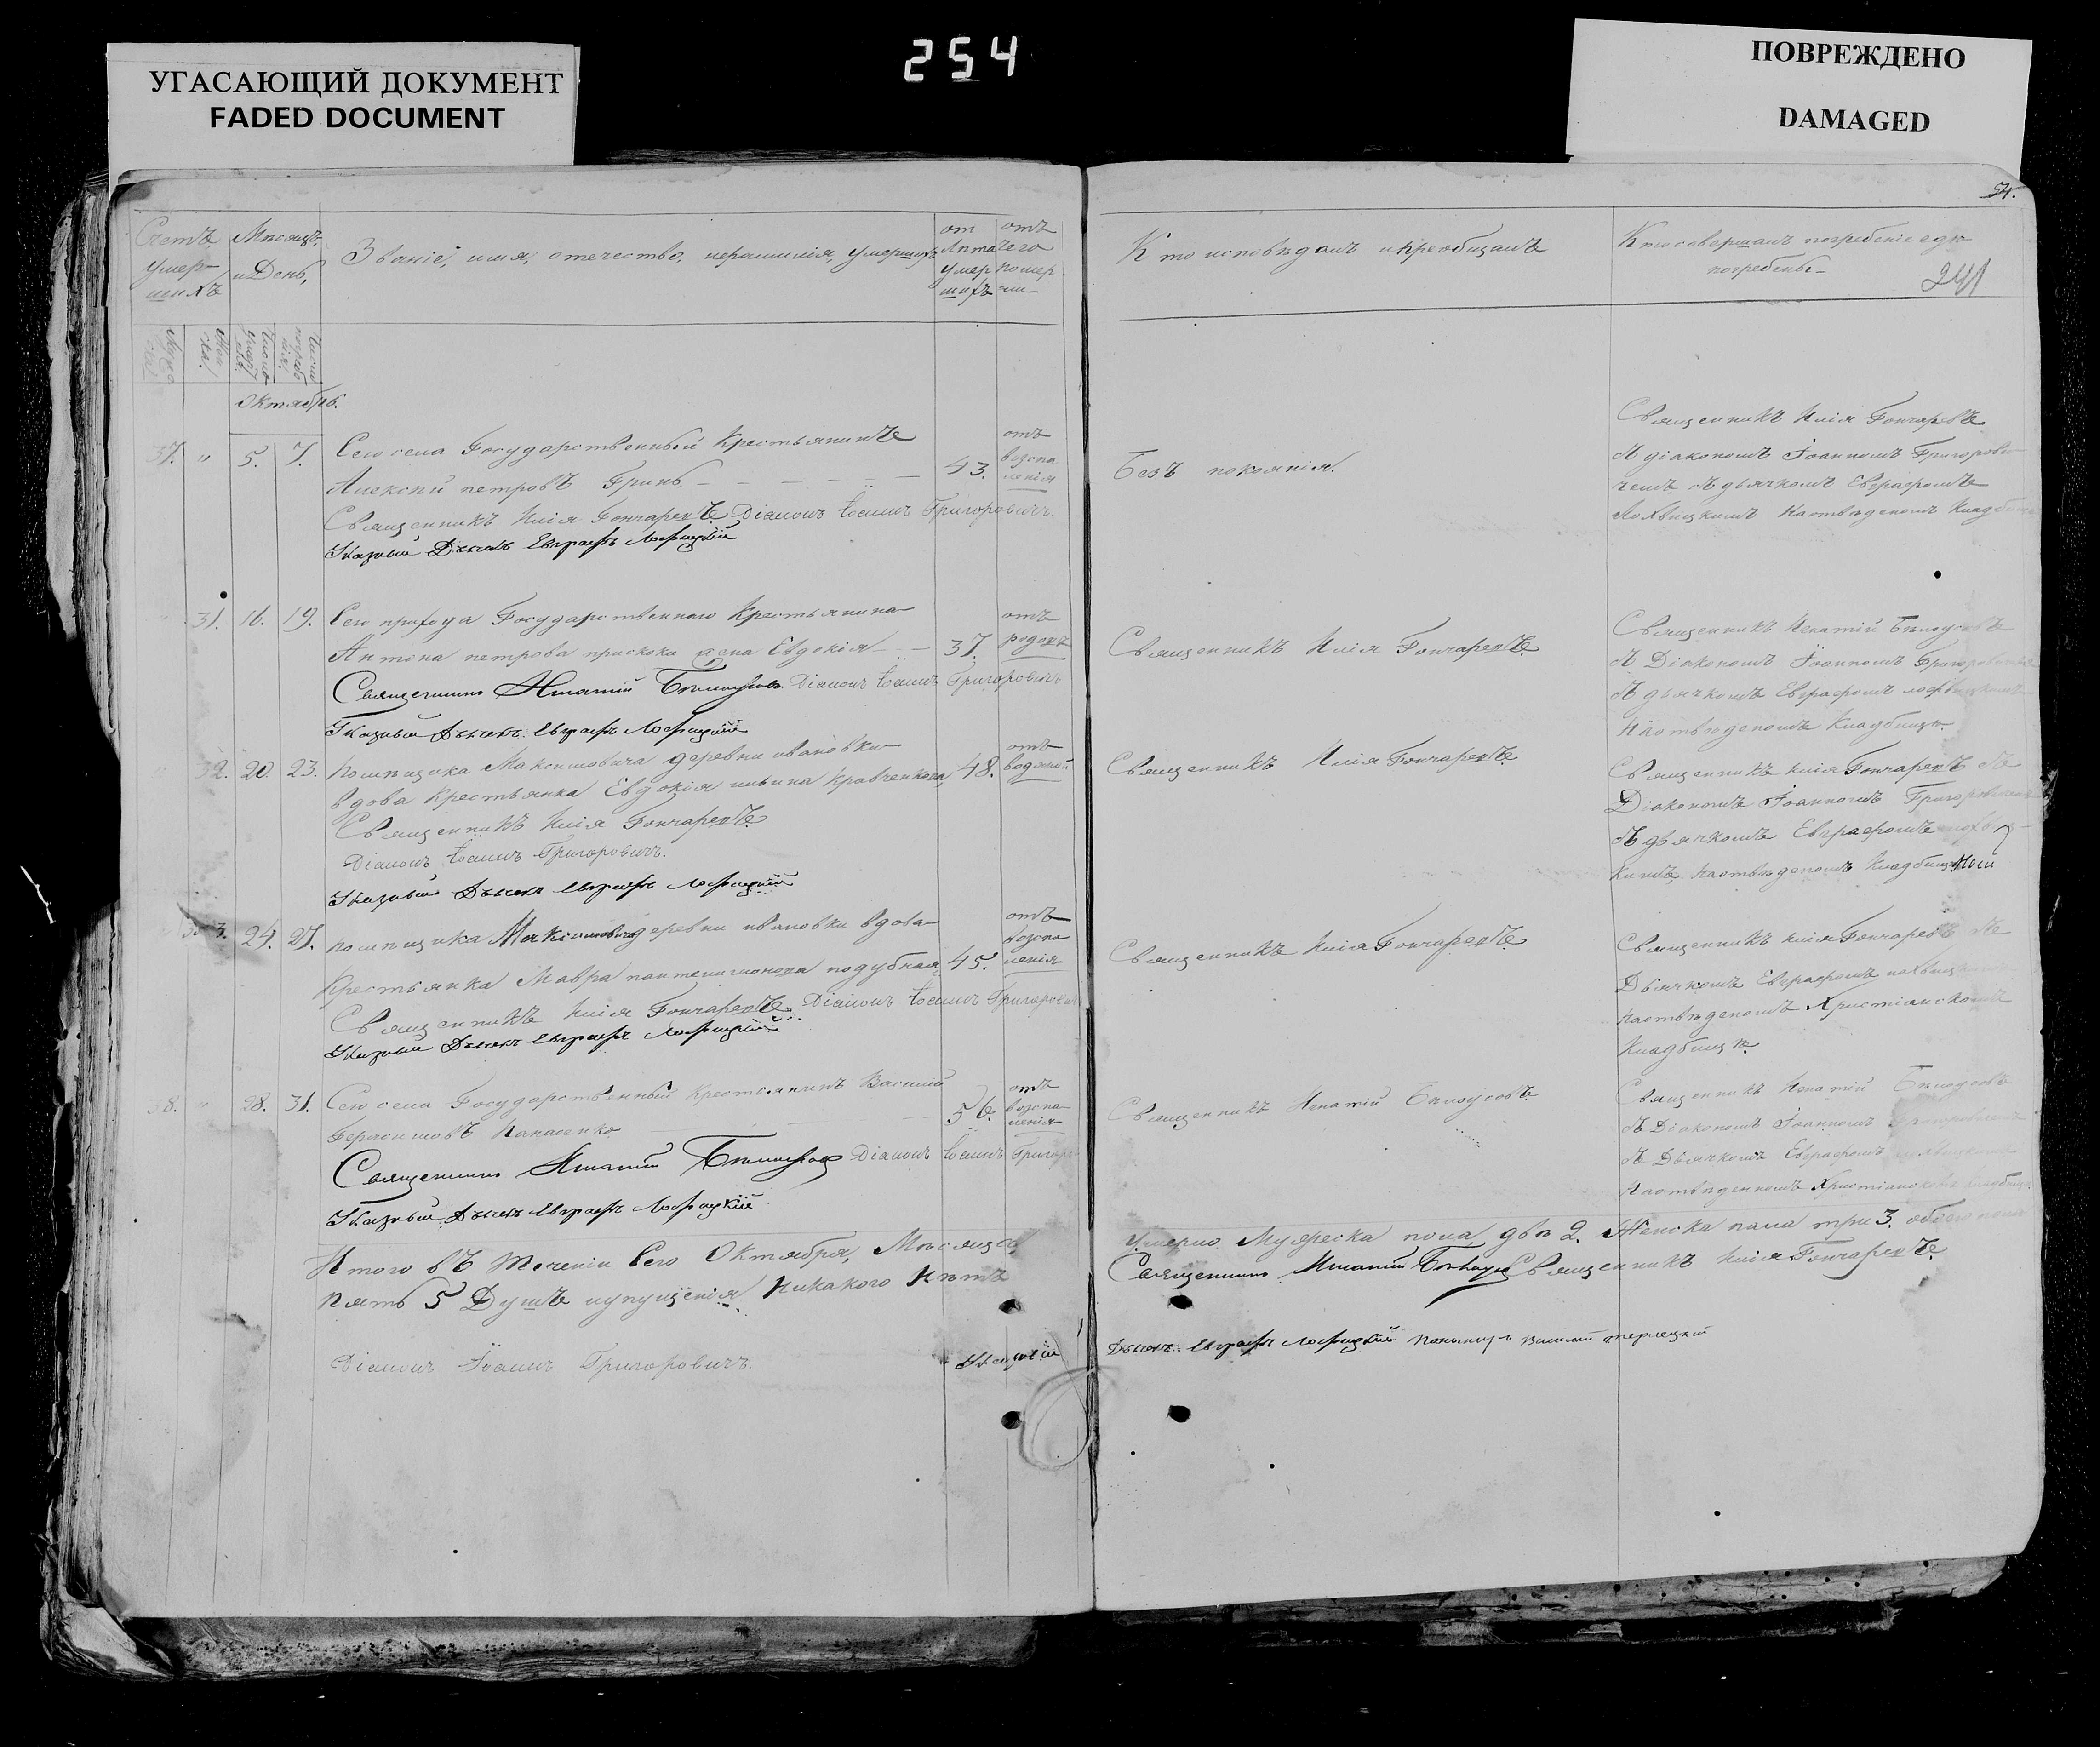 254
УГАСАЮЩИЙ ДОКУМЕНТ
FADED DOCUMENT
ПОВРЕЖДЕНО
DAMAGED
54.
241
Счетъ умер-шихъ
Мѣсяцъ и День,
Званіе, имя, отечество, и фамилія, умершихъ
от Лѣта умер шихъ
отъ чего помер ли-
Октябрь.
37. " 5. 7. Сего села Государственный Крестьянинъ
Алексѣй петровъ Гринь 43. отъ воспаленія
Священникъ Илія Гончаревъ Діаконъ Іоаннъ Григоровичъ.
Указный Дьячекъ Евграфъ Лохвицкій
" 31. 16. 19. Сего прихода Государственнаго Крестьянина
Антона петрова жена Евдокія 37. отъ родовъ
Священникъ Игнатій Бѣлоусовъ Діаконъ Іоаннъ Григоровичъ
Указный Дьячекъ Евграфъ Лохвицкій
" 32. 20. 23. помѣщика Максимовича деревни ивановки
вдова Крестьянка Евдокія ильина Кравченкова 48. отъ водяной
Священникъ Илія Гончаревъ
Діаконъ Іоаннъ Григоровичъ.
Указный Дьячекъ Евграфъ Лохвицкій
33. 24. 27. помѣщика Максимовича деревни ивановки вдова
Крестьянка Мавра пантелимонова 45. отъ воспаленія
Священникъ Илія Гончаревъ Діаконъ Іоаннъ Григоровичъ
Указный Дьячекъ Евграфъ Лохвицкій
38. " 28. 31. Сего села Государственный Крестьянинъ Василій
Герасимовъ Панасенко 56. отъ воспаленія
Священникъ Игнатій Бѣлоусовъ Діаконъ Іоаннъ Григоровичъ
Указный Дьячекъ Евграфъ Лохвицкій
Итого въ теченіи Сего Октября, Мѣсяца,
пять 5 Душъ и упущенія никакого нѣтъ
Діаконъ Іоаннъ Григоровичъ.
Указный
Кто исповѣдалъ и пріобщалъ
Кто совершалъ погребеніе и гдѣ
погребены-
Безъ покоянія.
Священникъ Илія Гончаревъ
съ діакономъ Іоанномъ Григорови-
чемъ съ дьячкомъ Евграфомъ
Лохвицкимъ на отведеномъ Кладбищѣ
Священникъ Илія Гончаревъ
Священникъ Игнатій Бѣлоусовъ
съ Діакономъ Іоанномъ Григоровичемъ
съ дьячкомъ Евграфомъ лохвицкимъ
на отведеномъ Кладбищѣ.
Священникъ Илія Гончаревъ
Священникъ Илія Гончаревъ съ
Діакономъ Іоанномъ Григоровичемъ
съ дьячкомъ Евграфомъ лохвиц-
кимъ, на отведеномъ Кладбищѣ
Священникъ Илія Гончаревъ
Священникъ Илія Гончаревъ съ
Дьячкомъ Евграфомъ лохвицкимъ
на отведеномъ Христіанскомъ
Кладбищѣ.
Священникъ Игнатій Бѣлоусовъ
Священникъ Игнатій Бѣлоусовъ
съ Діакономъ Іоанномъ Григоровичемъ
съ Дьячкомъ Евграфомъ лохвицкимъ
на отведенномъ Христіанскомъ кладбищѣ
Умерло Мужеска пола два 2. Женска пола три 3. обоего пола
Священникъ Игнатій Бѣлоусовъ Священникъ Илія Гончаревъ
Дьячекъ Евграфъ Лохвицкій Пономарь Василій